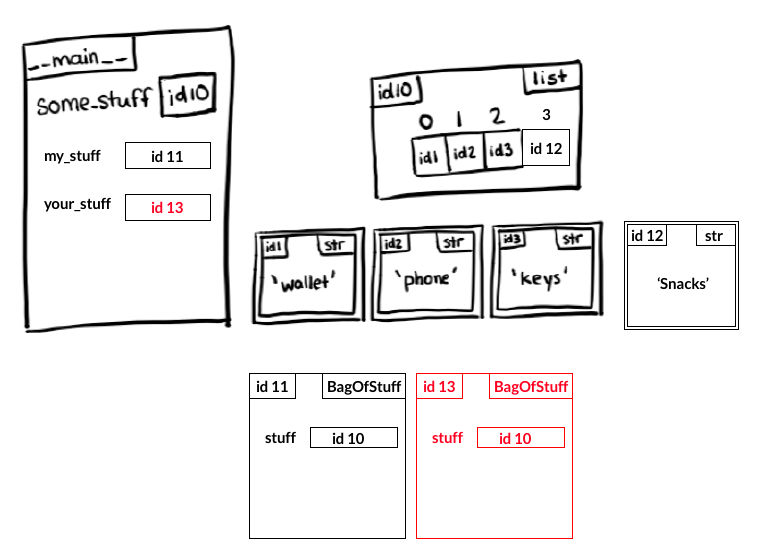 __main__
some_stuff id10
my_stuff id 11
your_stuff id 13
id10 list
0 1 2 3
id1 id2 id3 id 12
id1 str
'wallet'
id2 str
'phone'
id3 str
'keys'
id 12 str
‘Snacks’
id 11 BagOfStuff
stuff id 10
id 13 BagOfStuff
stuff id 10